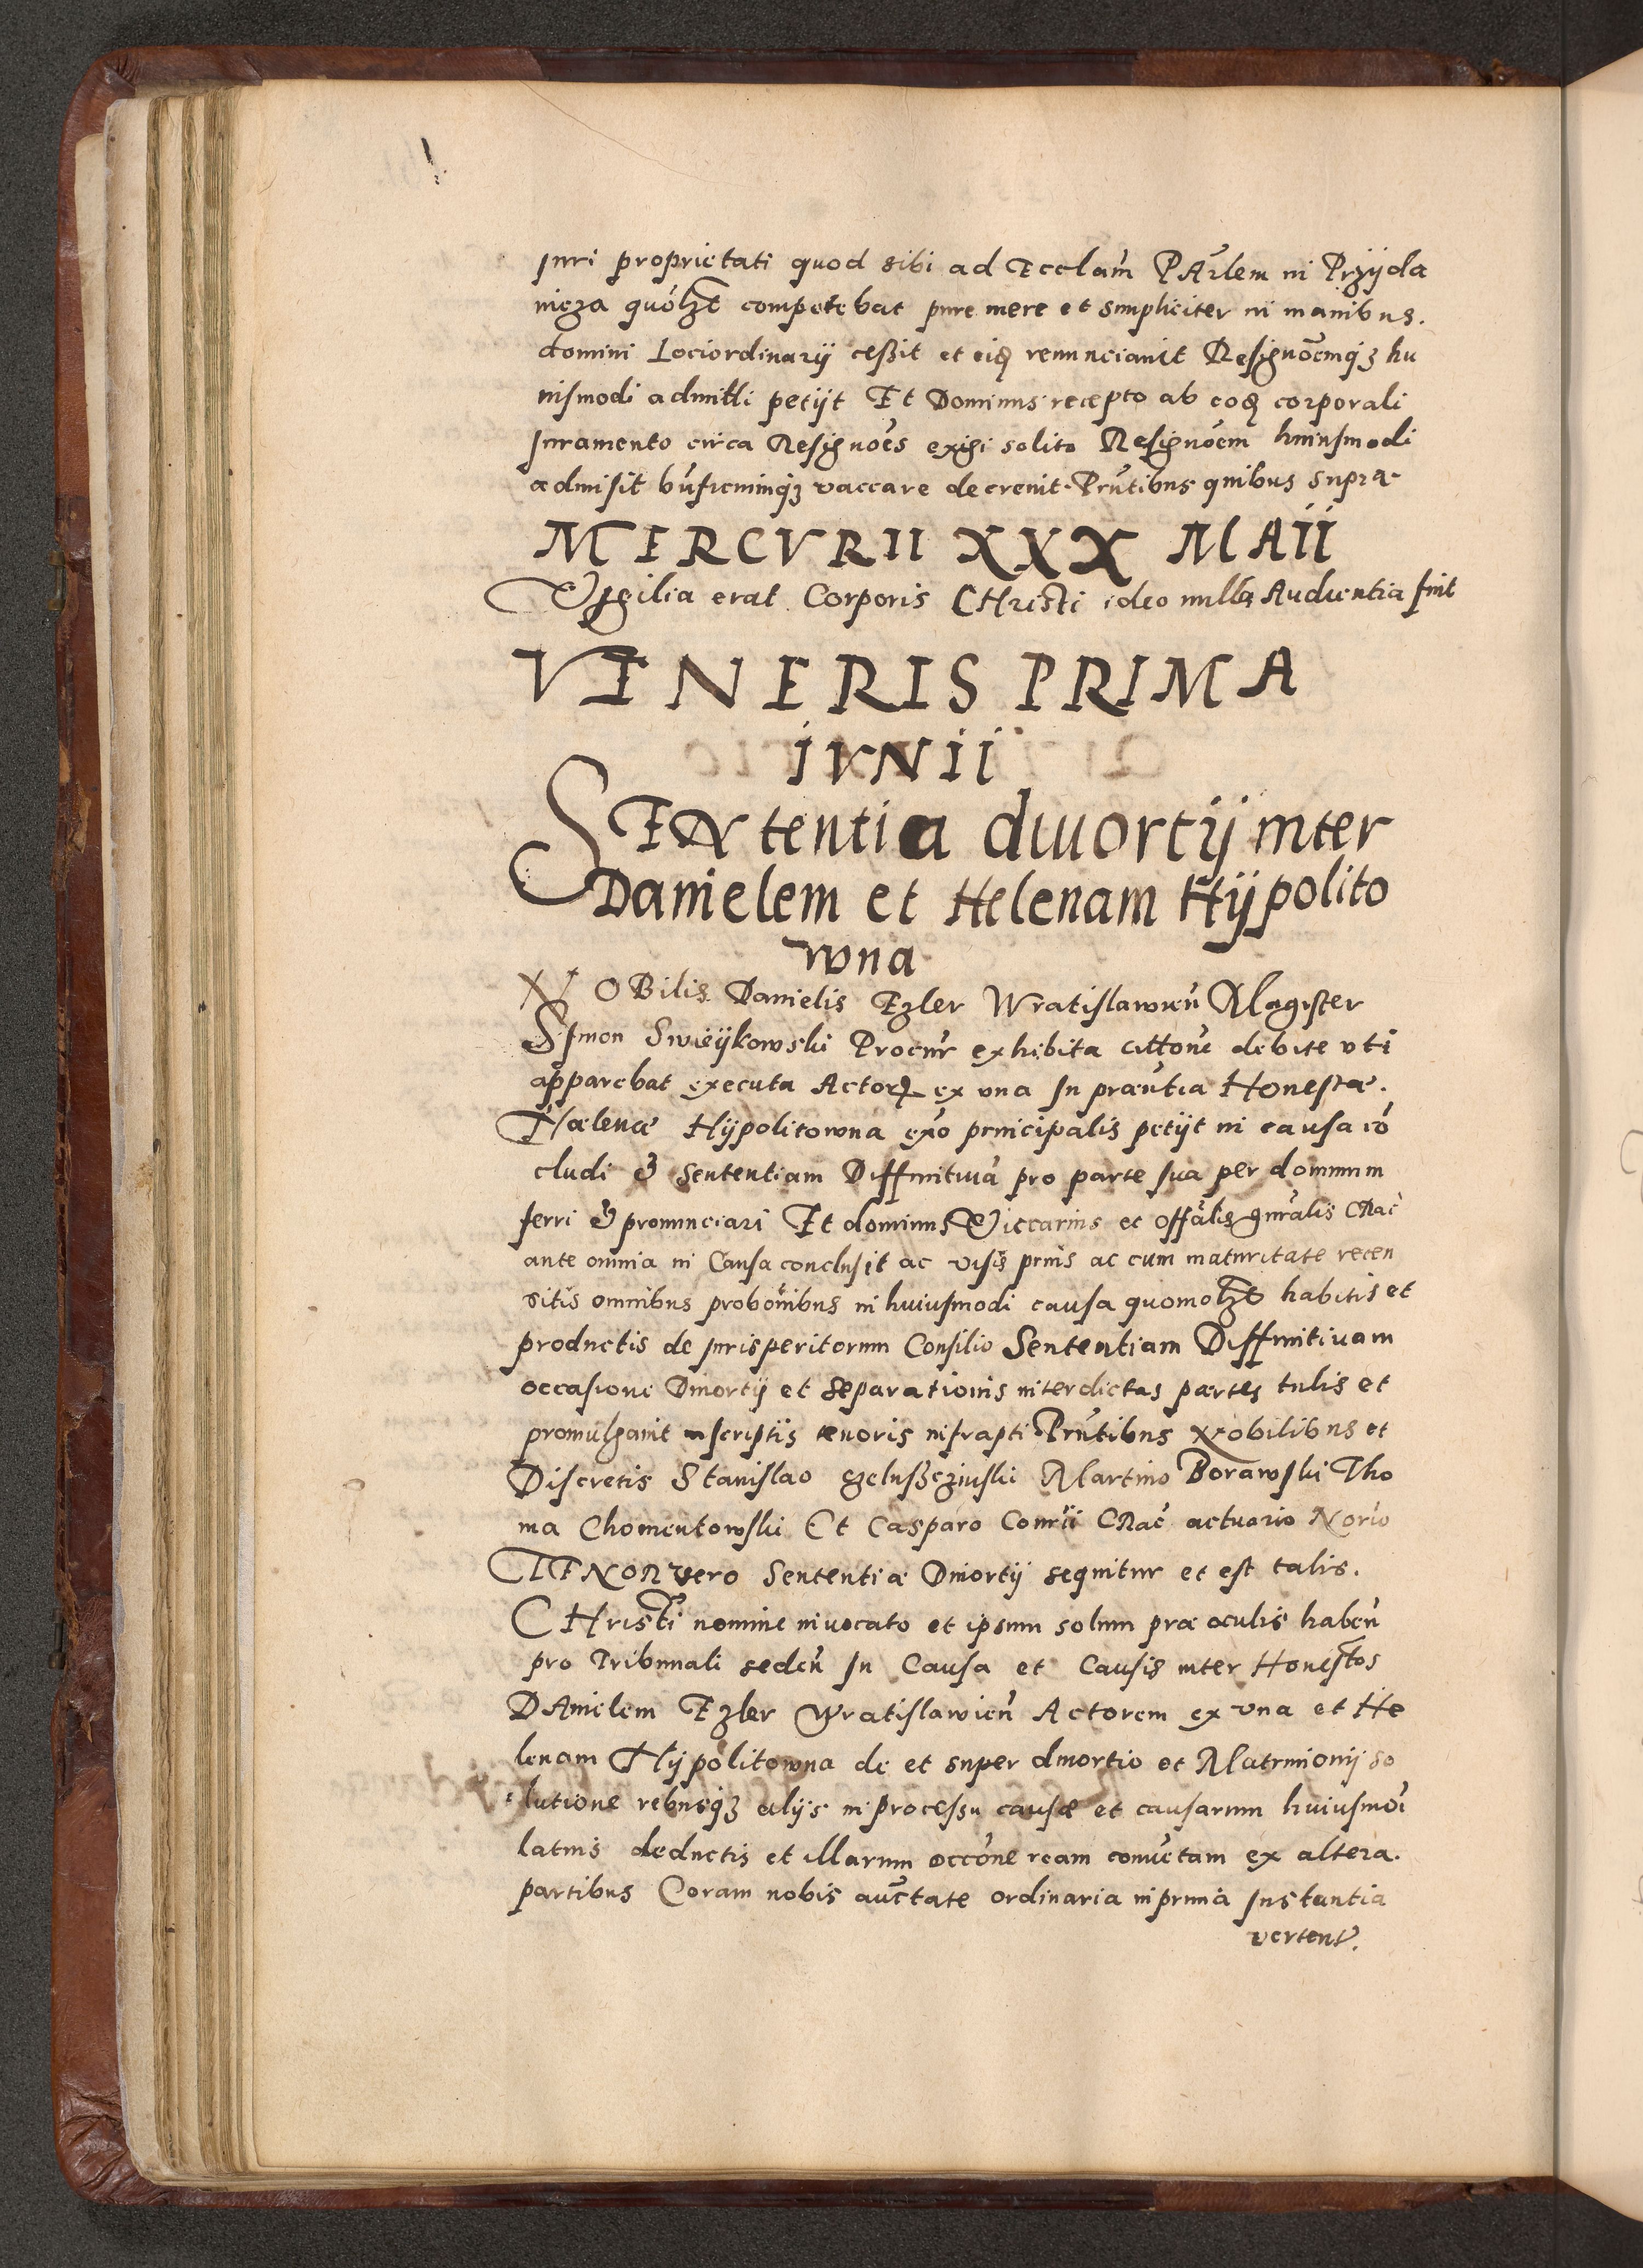 Juri proprietati quod sibi ad Ecclam̃ PArlem in Przyda
nicza quolz̃t competebat pure mere et simpliciter in manibus.
domini Lociordinarij cessit et eiꝗ renunciauit Resignõemqꝫ hu
iusmodi admitti petijt Et Dominus recepto ab eoꝗ corporali
Juramento circa Resignões exigi solito Resignõem huiusmodi
admisit bñficiumqꝫ vaccare decreuit. Prñtibus quibus supra
MERCVRII XXX MAII
Vigilia erat Corporis CHristi ideo nulla Audientia fuit
VENERIS PRIMA
IVNII
SENtentia diuortij inter
Danielem et Helenam Hijpolito
wna
NOBilis Danielis Ezler Wratislawień Magister
Simon Swieijkowski Procur̃ exhibita cittõne debite vti
apparebat executa Actorꝭ ex vna In præñtia Honestæ.
Hælenæ Hijpolitowna exõ principalis petijt in causa cõ
cludi & Sententiam Diffinitiuã pro parte sua per dominum
ferri & pronunciari Et dominus Viccarius et offãlis gnrãlis CRac̃
ante omnia in Causa conclusit ac visis prius ac cum maturitate recen
sitis omnibus probõnibus in huiusmodi causa quomolz̃t habitis et
productis de Jurisperitorum Consilio Sententiam Diffinitiuam
occasione Diuortij et Separationis inter dictas partes tulit et
promulgauit in scriptis tenoris infrapti Prñtibus Nobilibus et
Discretis Stanislao Martino Borawski Tho
ma Chomentowski Et Casparo CRac̃ actuario
TENOR vero Sententiæ Diuortij sequitur et est talis.
CHristi nomine inuocato et ipsum solum præ oculis habeñ
pro Tribunali sedeñ In Causa et Causis inter Honestos
DAnielem Ezler Wratislawień Actorem ex vna et He
lenam Hijpolitowna de et super diuortio et Matrimonij so
lutione rebusqꝫ alijs in processu causæ et causarum huiusmõi
latius deductis et illarum occõne ream conuẽtam ex altera.
partibus Coram nobis auc̃tate ordinaria in prima Instantia
verteñt.